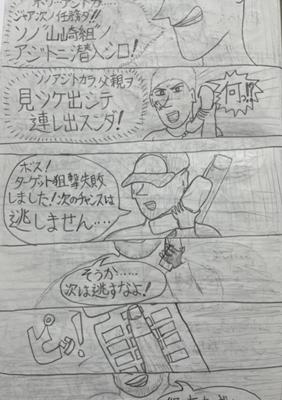 ジャア次ノ任務ダ!!
ソノ"山崎組"ノ
アジトニ潜入シロ!
ソノアジトカラ、父親ヲ
見ツケ出シテ
連レ出スンダ!
何っ!!
ボス!
ターゲット狙撃失敗
しました!次のチャンスは
逃しません‥‥
そうか‥‥
次は逃すなよ!
ピッ!